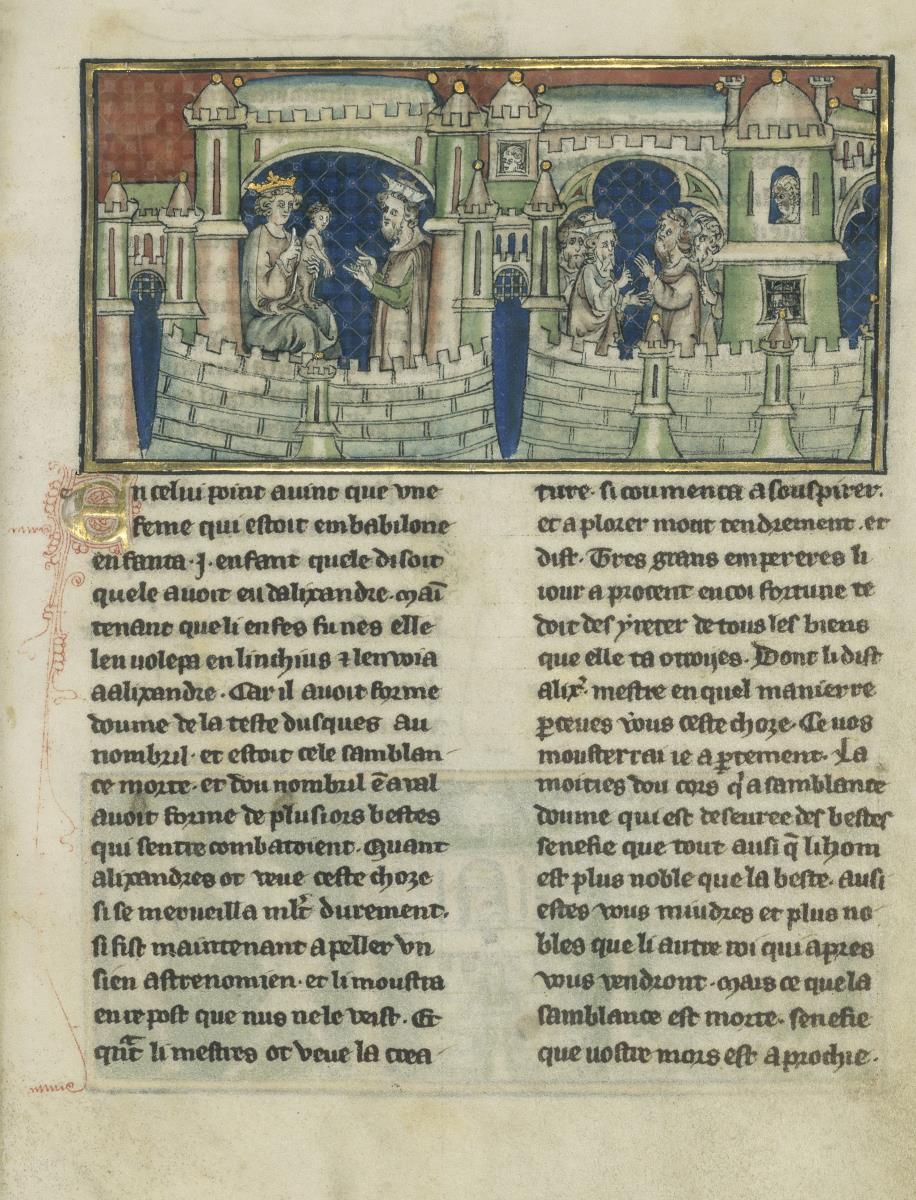 En celui point auint que vne
feme qui estoit em babilone
enfanta .j. enfant quele disoit
quele auoit eu dalixandre. Mai᷉
tenant que li enfes fu nes elle
len uolepa en linchius ⁊ lenvoia
a alixandre. Car il auoit forme
doume de la teste dusques au
nombril. et estoit cele samblan
ce morte. et dou nombril ẽ aval
auoit forme de plusiors bestes
qui sentre combatoient. Quant
alixandres ot veue ceste choze
si se merueilla ml̃t durement.
si fist maintenant apeller vn
sien astrenomien. et li moustra
en repost que nus ne le veist. Et
qñt li mestres ot veue la crea
ture. si coumenca a souspirer.
et a plorer mout tendrement. et
dist. Tres grans empereres li
iour aprocent en coi fortune te
doit desyreter de tous les biens
que elle ta otroijes. Dont li dist
alix᷑. mestre en quel manierre
ꝑceues vous ceste choze. Ce uos
mousterrai ie aꝑtement. La
moities dou cors q̇ a samblance
doume qui est deseure des bestes
senefie que tout ausi q̃ li hom
est plus noble que la beste. ausi
estes vous miudres et plus no
bles que li autre roi qui apres
vous vendront. Mais ce que la
samblance est morte. senefie
que uostre mors est aprochie.